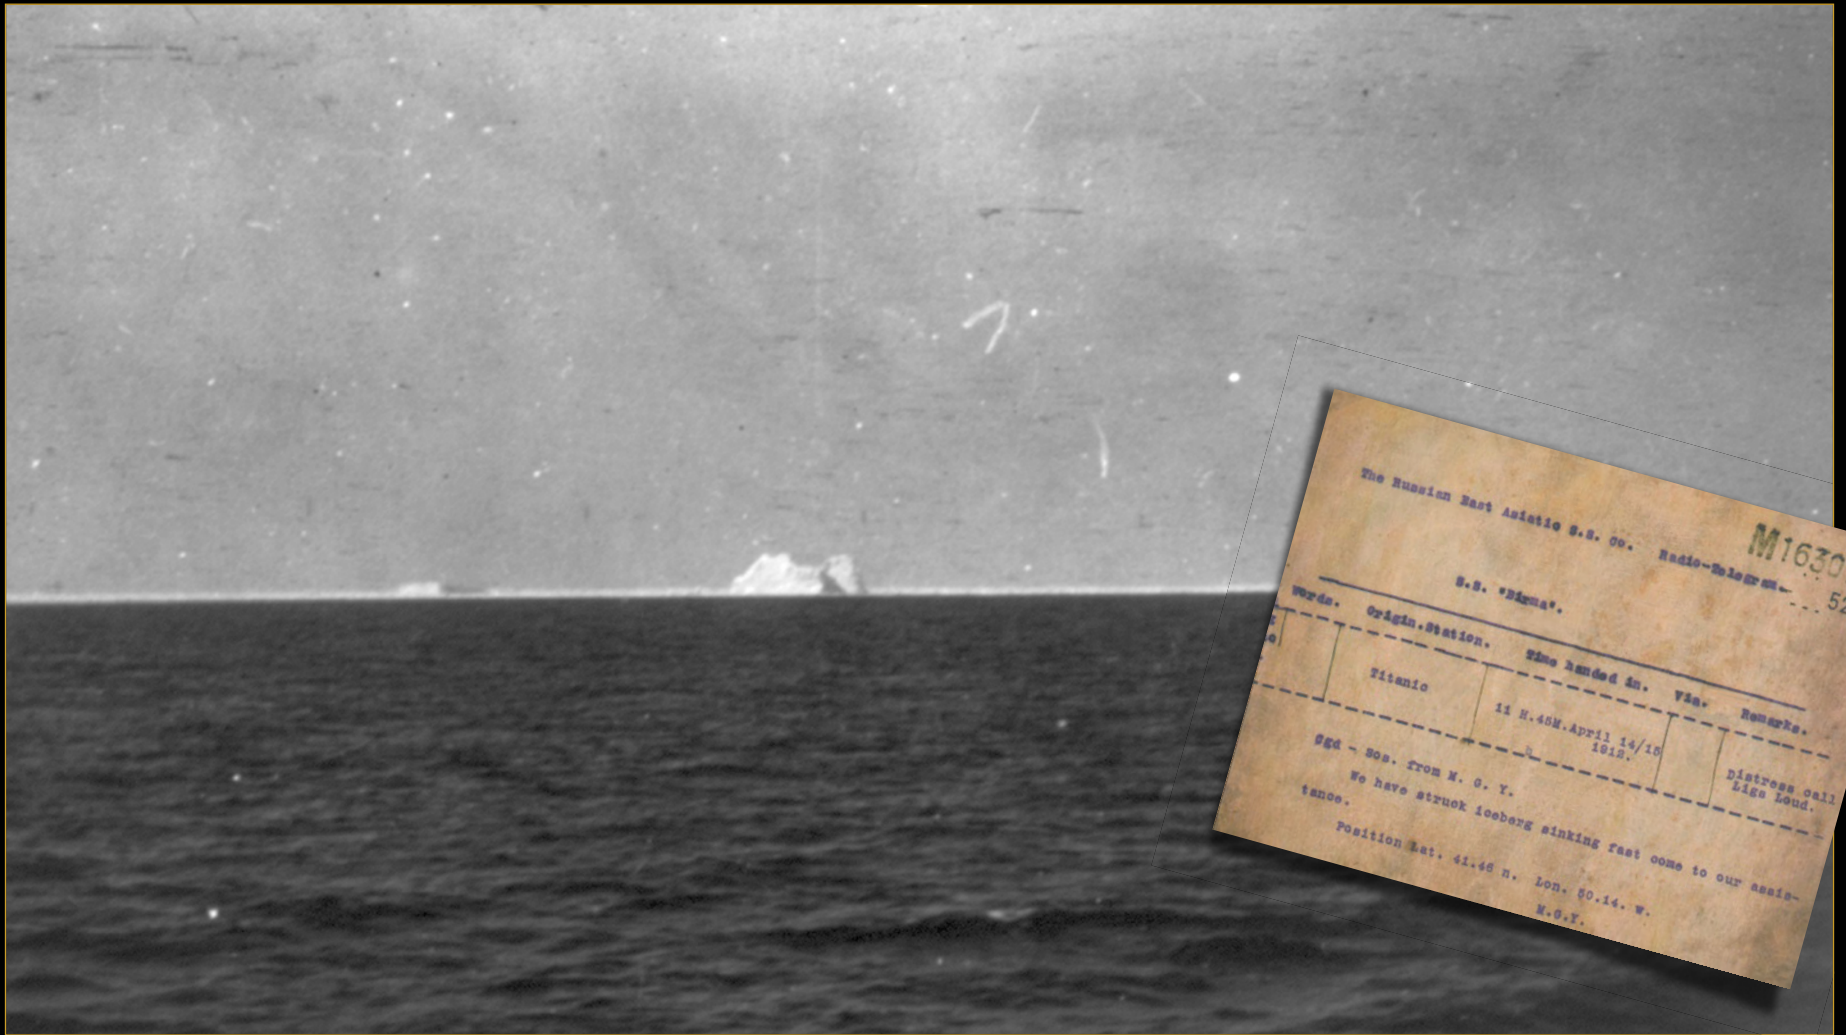 The Russian East Asiatic S.S. Co. Radio-Telegram.
M1630
52
S.S. "Birma".
Words. Origin.Station. Time handed in. Via. Remarks.
Titanic
11 H.45M.April 14/15
1912.
Distress call
Ligs Loud.
Cgd - Sos. from M. G. Y.
We have struck iceberg sinking fast come to our assis-
tance.
Position Lat. 41.46 n. Lon. 50.14. w.
M.G.Y.